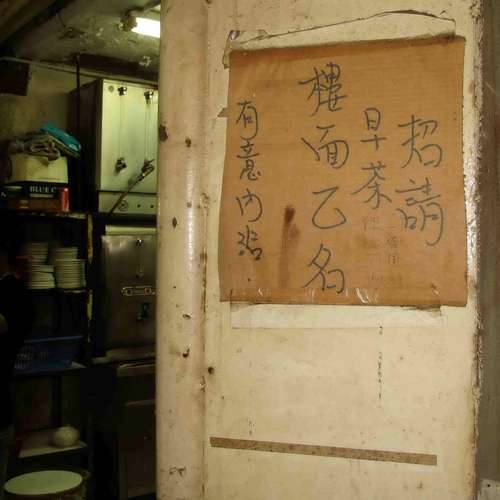 招請
早茶
樓面乙名
有意內洽
BLUE